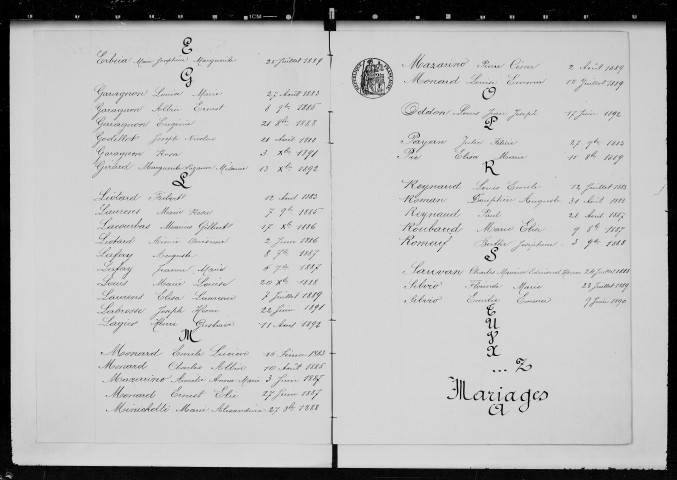 E
Erbeia Marie Joséphine Marguerite 25 Juillet 1889
G
Garagnon Louise Marie 27 Août 1883
Garagnon Albin Ernest 6 7bre 1885
Garagnon Eugénie 21 8bre 1888
Godillot Joseph Nicolas 21 Août 1890
Garagnon Rosa 3 Xbre 1891
Girard Marguerite 13 Xbre 1892
L
Liotard Fiobert 12 Août 1883
Laurens Marie Rosa 7 9bre 1885
Lacombas Maurius Gilbert 17 Xbre 1886
Liotard 2 Juin 1886
Lafay Auguste 8 7bre 1887
Lafay Jeanne Marie 8 7bre 1887
Louis Marie Louise 20 Xbre 1888
Laurens Elisa Laurence 7 Juillet 1889
Labrosse Joseph 22 Juin 1891
Lagier 11 Août 1892
M
Monard Emile Lucien 16 Février 1883
Monard Charles Albin 10 Août 1885
Mazurino Amélie Anna Marie 3 Juin 1887
Monard Ernest Elie 27 Juin 1887
Minichetti Marie Alexandrine 27 8bre 1888
REPUBLIQUE FRANÇAISE
Mazarino Pierre César 2 Août 1889
Monard Louise Emma 18 Juillet 1889
O
Oddon Louis Jean Joseph 17 Juin 1892
P
Payan Julie 27 9bre 1883
Pie Elisa Marie 11 8bre 1889
R
Reynaud Louis Emile 12 Juillet 1883
Roman Dauphin Auguste 31 Août 1883
Reynaud Paul 21 Août 1887
Roubaud Marie Elise 9 8bre 1887
Romeuf Berthe Joséphine 3 9bre 1888
S
Sauvan Charles Marius Edmond 24 Juillet 1888
Silvio Florinde Marie 23 Juillet 1889
Silvio Emilie Emma 9 Juin 1890
T
U
V
X
... Z
Mariages
A